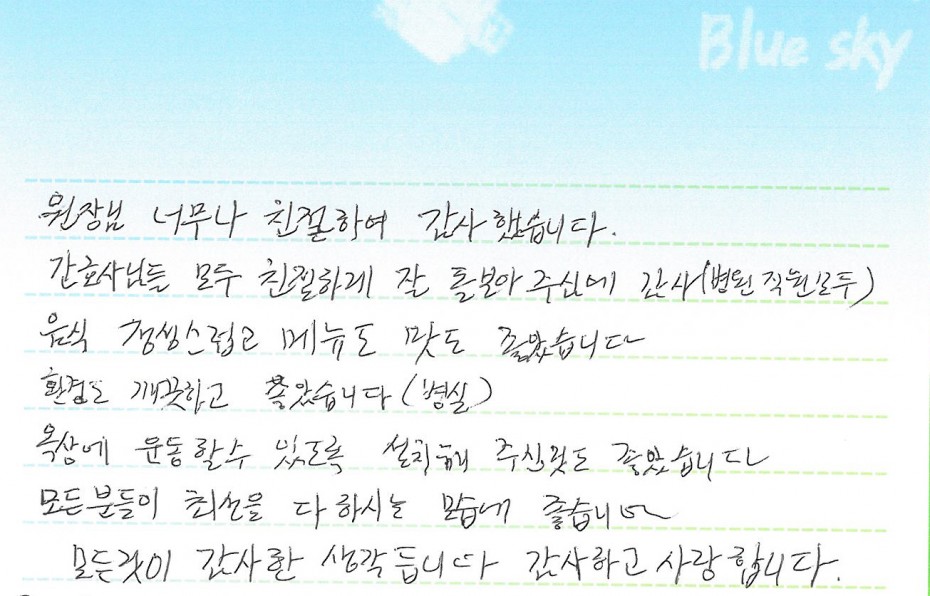 Blue sky
원장님 너무나 친절하여 감사했습니다.
간호사님들 모두 친절하게 잘 돌보아 주신에 감사(병원 직원모두)
음식 정성스럽고 메뉴도 맛도 좋았습니다
환경도 깨끗하고 좋았습니다 (병실)
옥상에 운동 할수 있도록 설치해 주신것도 좋았습니다
모든분들이 최선을 다 하시는 모습에 좋습니다
모든것이 감사한 생각듭니다 감사하고 사랑합니다.